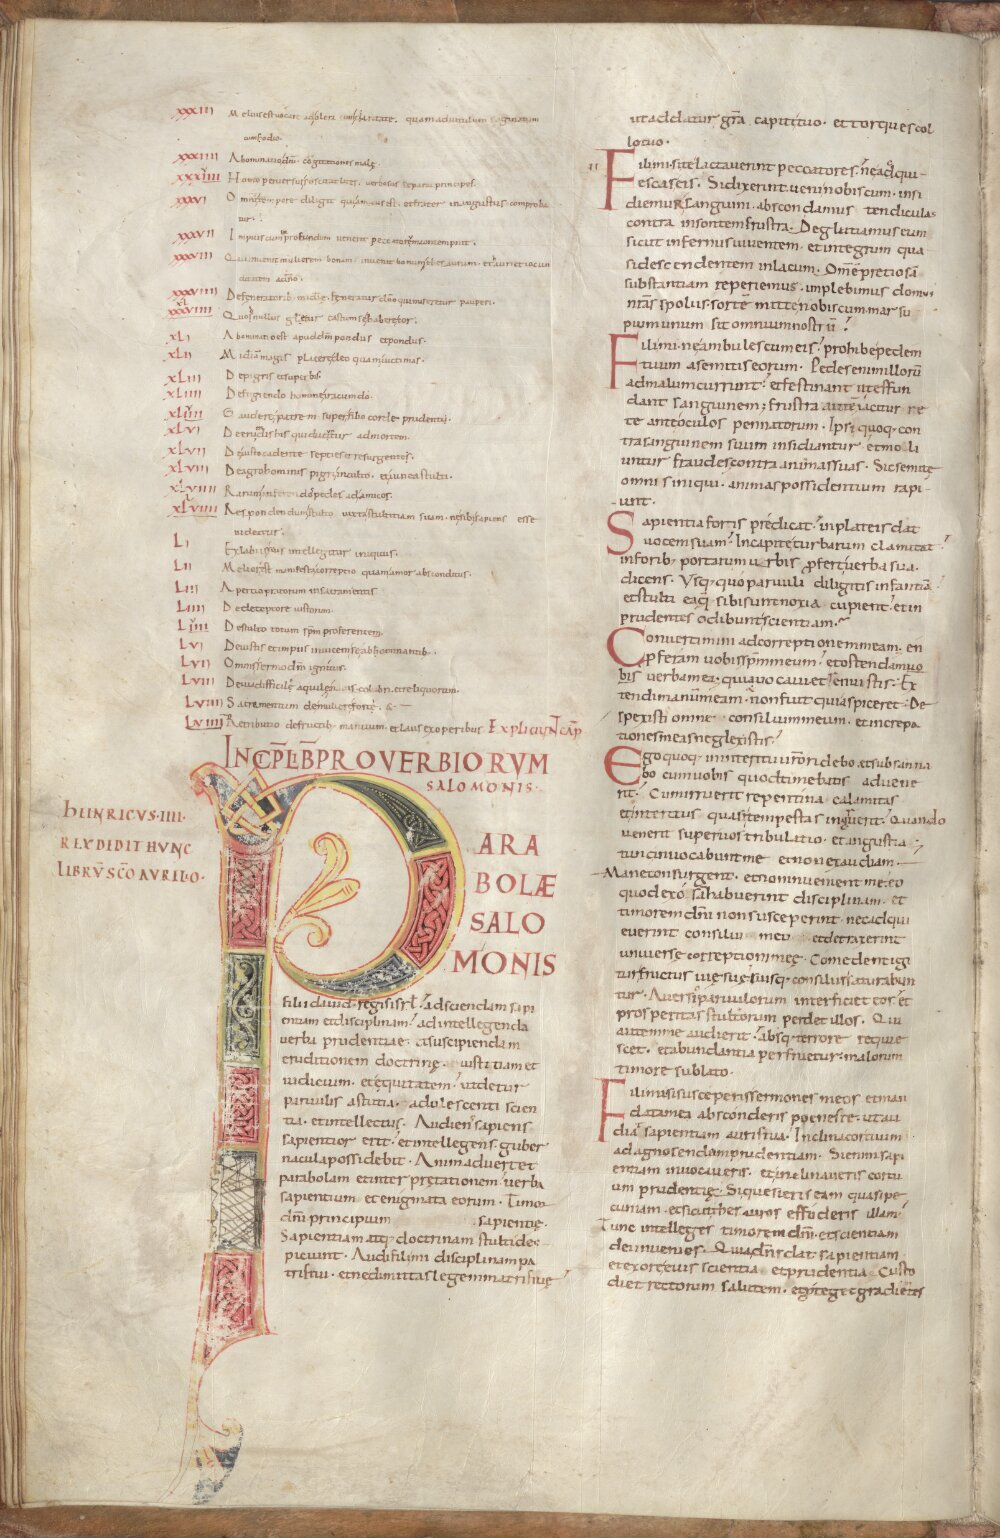 XXXIII Melius est vocare ad olera cum caritate. quam ad vitulum saginatum
cum hodio.
XXXIIII Abominatio dni. cogitationes malę.
Homo perversus suscitat lites. verbosus separat principes.
XXXVI Omni tempore diligit qui amicus est. et frater in angustiis comproba
tur.
XXXVII Impius cum in profundum venerit peccatorum contempnit.
XXXVIII Qui invenit mulierem bonam. invenit bonum
a dno.
XXXVIIII Feneratur dno qui miseretur pauperi.
XLI Abominatio est apud dm pondus et pondus.
XLII Misericordia magis placet deo quam victimas.
XLIII De pigris et superbis.
XLIIII De fugiendo homine iracundo.
Gaudere patrem super filio corde prudenti.
XLVI De eruendis his qui ducuntur ad mortem.
XLVII De iusto cadente septies et resurgente.
XLVIII De agro hominis pigri inculto. et iuncta stulti.
XLVIIII
Respondendum stulto iuxta stultitiam suam. ne sibi sapiens esse
videatur.
LI Ex labiis suis intellegitur inimicus.
LII Melior est manifesta correptio quam amor absconditus.
LIII
LIIII De deceptore iustorum.
De stulto totum spm proferentem.
LVI De iustis et impiis invicem se abhominantib.
LVII Omnis sermo dni ignitus.
LVIII De via difficile aquilę navis colubri. et reliquorum.
LVIIII Sacramentum de muliere forte. &
Retributio de fructib. manuum. et laus ex operibus Expliciunt cap
INCP LIB PROVERBIORVM
SALOMONIS.
HEINRICVS IIII.
REX DEDIT HVNC
LIBRVM SCO AVRELIO.
PARA
BOLÆ
SALO
MONIS
filii david. regis isrl. ad sciendam sapi
entiam et disciplinam. ad intellegenda
verba prudentiae. et suscipiendam
eruditionem doctrinę. iustitiam et
iudicium. et equitatem. ut detur
parvulis astutia. adulescenti scien
tia. et intellectus. Audiens sapiens
sapientior erit. et intellegens guber
nacula possidebit. Animadvertet
parabolam et interpretationem. verba
sapientium et enigmata eorum. Timor
dni principium sapientię.
Sapientiam atq doctrinam stulti des
piciunt. Audi fili mi disciplinam pa
tris tui. et ne dimittas legem matris tuę
ut addatur gra capiti tuo. et torques col
lo tuo.
Fili mi. si te lactaverint peccatores. ne adqui
escas eis. Si dixerint. veni nobiscum. insi
diemur sanguini. abscondamus tendiculas
contra insontem frustra. Deglutiamus eum
sicut infernus viventem. et integrum qua
si descendentem in lacum. Omē pretiosā
substantiam reperiemus. implebimus domos
nrās spoliis. sortē mitte nobiscum. marsu
pium unum sit omnium nostrū.
Fili mi. ne ambules cum eis. prohibe pedem
tuum a semitis eorum. Pedes enim illorū
ad malum currunt. et festinant ut effun
dant sanguinem; frustra autē iacitur re
te ante oculos pennatorum. Ipsi quoq. con
tra sanguinem suum insidiantur. et moli
untur fraudes contra animas suas. Sic semitę
omnis iniqui. animas possidentium rapi
unt.
Sapientia foris prędicat. in plateis dat
vocem suam. In capite turbarum clamitat.
in forib; portarum urbis pfert verba sua.
dicens. Usq. quo parvuli diligitis infantiā.
et stulti ea q sibi sunt noxia cupient. et in
prudentes odibunt scientiam.
Convertimini ad correptionem meam. en
pferam vobis spm meum. et ostendam vo
bis verba mea. quia vocavi et renuistis. Ex
tendi manum meam. et non fuit qui aspiceret. De
spexisti omne consilium meum. et increpa
tiones meas neglexistis.
Ego quoq. in interitu vro ridebo. et subsanna
bo cum vobis quod timebatis advene
rit. Cum irruerit repentina calamitas
et interitus quasi tempestas ingruerit. Quando
venerit super vos tribulatio. et angustia.
tunc invocabunt me et non exaudiam.
Mane consurgent. et non invenient me. eo
quod exosā habuerint disciplinam. et
timorem dni non susceperint. nec adqui
everint consilio meo et detraxerint
universę correptioni meę. Comedent igi
tur fructus vię suę. suisq. consiliis saturabun
tur. Aversio parvulorum interficiet eos. et
prosperitas stultorum perdet illos. Qui
autem me audierit. absq. terrore requie
scet. et abundantia perfruetur. malorum
timore sublato.
Fili mi si susceperis sermones meos et man
data mea absconderis poenes te. ut au
diat sapientiam auris tua. Inclina cor tuum
ad agnoscendam prudentiam. Si enim sapi
entiam invocaveris. et inclinaveris cor tu
um prudentię. Si quesieris eam quasi pe
cuniam. et sicut thesauros effoderis illam.
Tunc intelleges timorem dni. et scientiam
dei invenies. Quia dns dat sapientiam.
et ex ore eius scientia et prudentia. Custo
diet rectorum salutem. et pteget gradientes